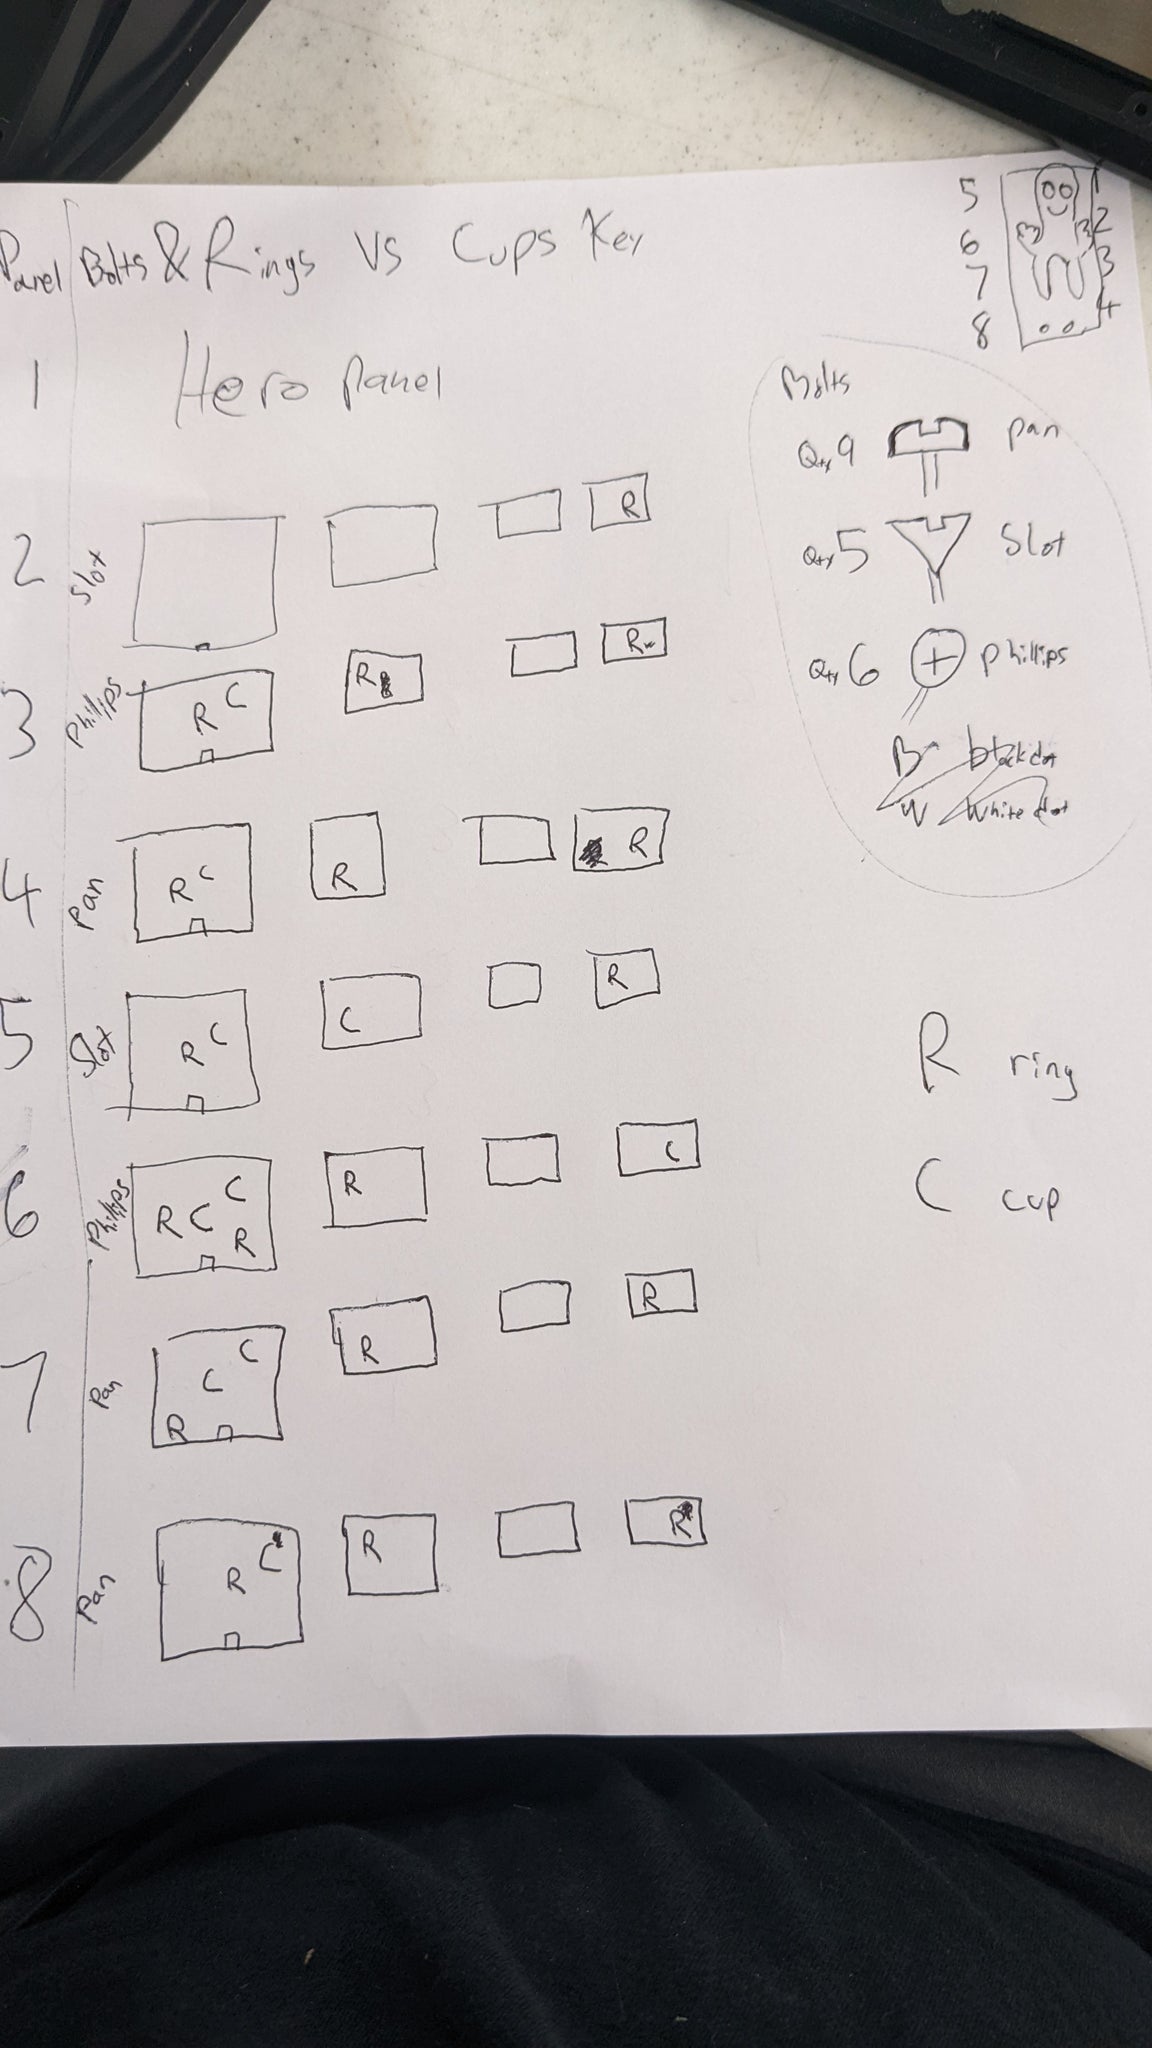 Panel Bolts & Rings vs Cups Key
5 1
6 2
7 3
8 4
1 Hero panel
Bolts
Qty 9 pan
Qty 5 Slot
Qty 6 phillips
B black dot
W White dot
2 Slot R
3 Phillips R C R R
4 Pan R C R R
5 Slot R C C R
R ring
6 Phillips R C C R R C
C cup
7 Pan R C C R R
8 Pan R C R R